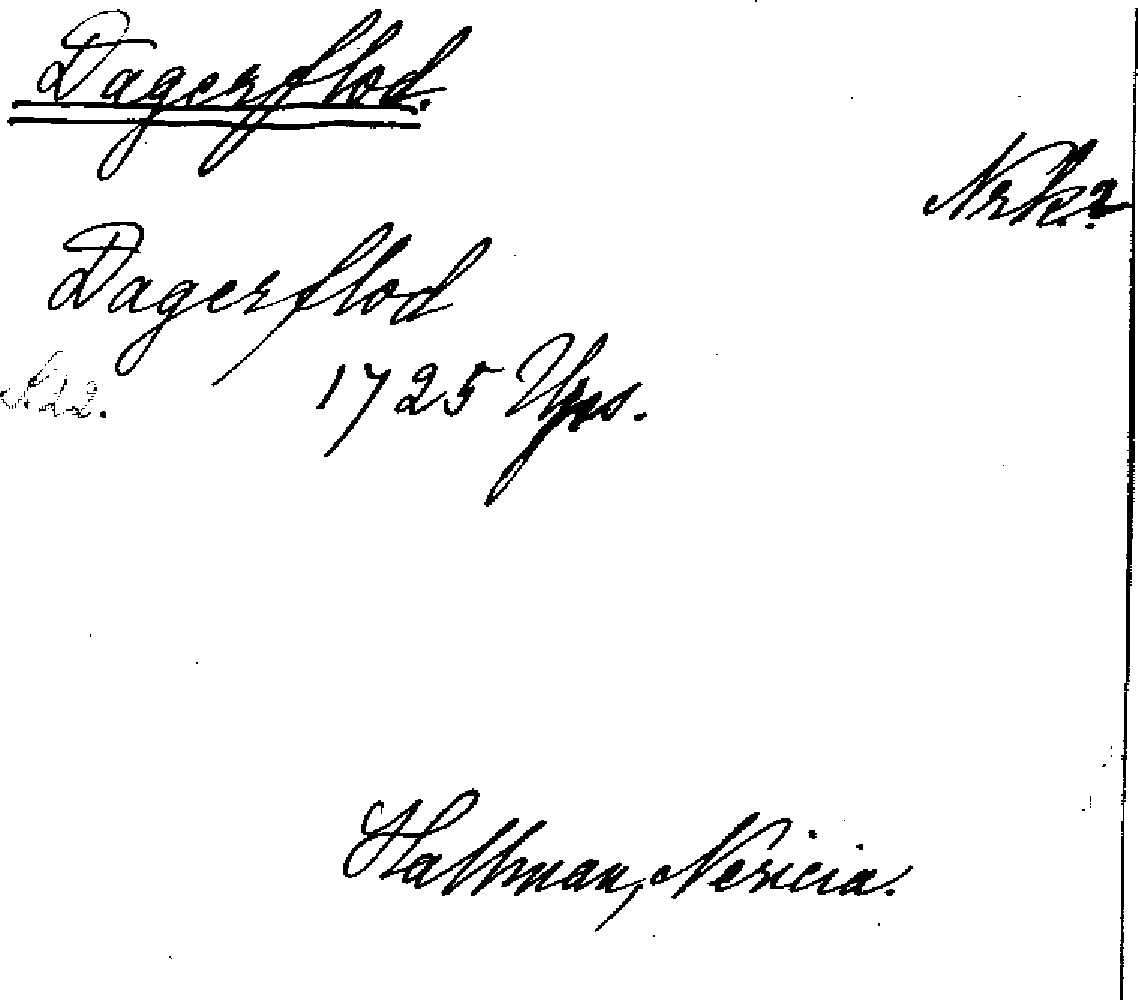 Dagerflod.
Nrk.?
Dagerflod
1725 Ups.
Hallman, Nericia.